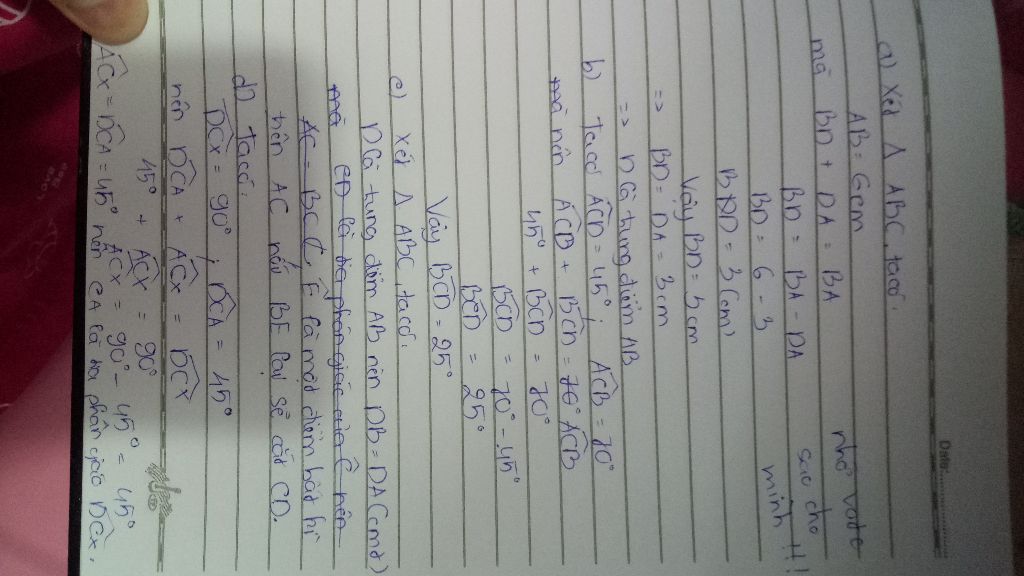 Date:
a) Xét Δ ABC, ta có:
AB = 6cm
mà BD + DA = BA
nhớ vote
BD = BA - DA
sao cho
BD = 6 - 3
mình !!!
BD = 3 (cm)
Vậy BD = 3cm
=> BD = DA = 3cm
=> D là trung điểm AB
b) Ta có ACD = 45°; ACB = 70°
mà nên ACD + BCD = ACB
45° + BCD = 70°
BCD = 70° - 45°
BCD = 25°
Vậy BCD = 25°
c) Xét Δ ABC, ta có:
D là trung điểm AB nên DB = DA (cmt)
mà CD là tia phân giác của C nên
AC = BC E là một điểm bất kì
trên AC nếu BE sẽ cắt CD.
d) Ta có:
DCx = 90°; DCA = 45°
nên DCA + ACx = DCx
45° + ACx = 90°
ACx = 90° - 45° = 45°
ACx = DCA = 45° nên CA là tia phân giác DCx.